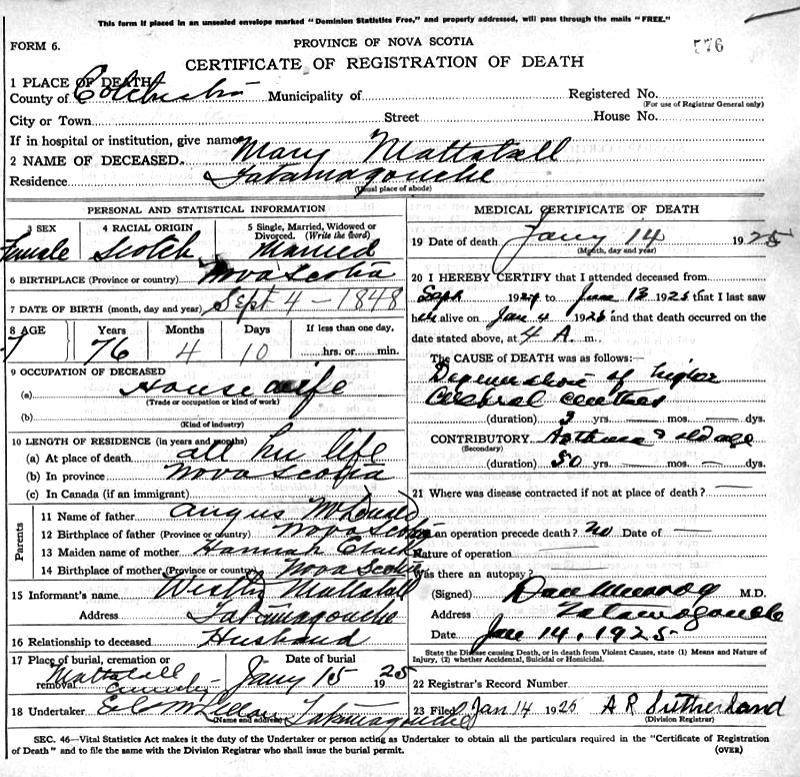 This form if placed in an unsealed envelope marked "Dominion Statistics Free," and property addressed, will pass through the mails "FREE."
FORM 6.
PROVINCE OF NOVA SCOTIA
576
CERTIFICATE OF REGISTRATION OF DEATH
1 PLACE OF DEATH
County of Colchester Municipality of Registered No.
(For use of Registrar General only)
City or Town Street House No.
If in hospital or institution, give name
2 NAME OF DECEASED. Mary Mattatall
Residence Tatamagouche
(Usual place of abode)
PERSONAL AND STATISTICAL INFORMATION
3 SEX 4 RACIAL ORIGIN 5 Single, Married, Widowed or Divorced. (Write the word)
Female Scotch Married
6 BIRTHPLACE (Province or country) Nova Scotia
7 DATE OF BIRTH (month, day and year) Sept 4 - 1848
8 AGE Years Months Days If less than one day,
76 4 10 hrs. or min.
9 OCCUPATION OF DECEASED
(a) House wife
(Trade or occupation or kind of work)
(b)
(Kind of industry)
10 LENGTH OF RESIDENCE (in years and months)
(a) At place of death all her life
(b) In province Nova Scotia
(c) In Canada (if an immigrant)
Parents
11 Name of father Angus McDonald
12 Birthplace of father (Province or country) Nova Scotia
13 Maiden name of mother Hannah
14 Birthplace of mother (Province or country) Nova Scotia
15 Informant's name Mattatall
Address Tatamagouche
16 Relationship to deceased Husband
17 Place of burial, cremation or removal Date of burial
Mattatall Cemetery Jany 15 1925
18 Undertaker Tatamagouche
(Name and address)
MEDICAL CERTIFICATE OF DEATH
19 Date of death Jany 14 1925
(Month, day and year)
20 I HEREBY CERTIFY that I attended deceased from
Sept 1924 to 13 1925 that I last saw
her alive on Jan 4 1925 and that death occurred on the
date stated above, at 4 A. m.
The CAUSE OF DEATH was as follows:—
Degeneration of higher
Cerebral centres
(duration) 3 yrs. — mos. — dys.
CONTRIBUTORY Asthma & old age
(Secondary)
(duration) 50 yrs. — mos. — dys.
21 Where was disease contracted if not at place of death? —
an operation precede death? no Date of —
Nature of operation —
Was there an autopsy? —
(Signed) Dan Murray M.D.
Address Tatamagouche
Date Jan 14, 1925
State the Disease causing Death, or in death from Violent Causes, state (1) Means and Nature of
Injury, (2) whether Accidental, Suicidal or Homicidal.
22 Registrar's Record Number
23 Filed Jan 14 1925 A R Sutherland
(Division Registrar)
SEC. 46—Vital Statistics Act makes it the duty of the Undertaker or person acting as Undertaker to obtain all the particulars required in the "Certificate of Registration
of Death" and to file the same with the Division Registrar who shall issue the burial permit.
(OVER)